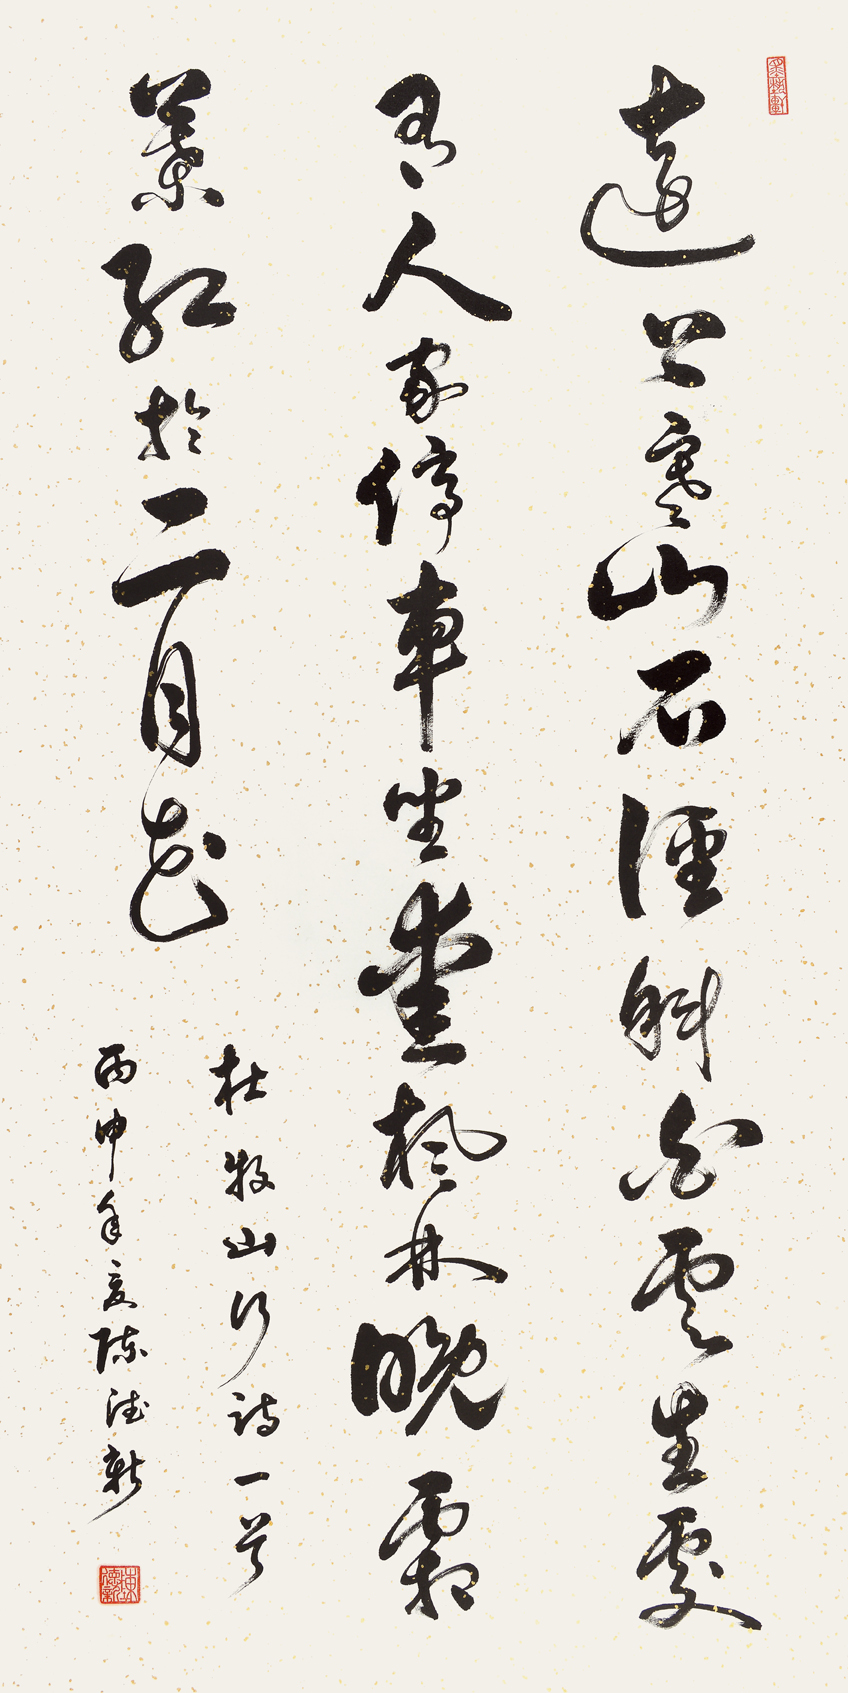 遠上寒山石徑斜白雲生處
有人家停車坐愛楓林晚霜
葉紅於二月花
杜牧山行詩一首
丙申年夏陳德新